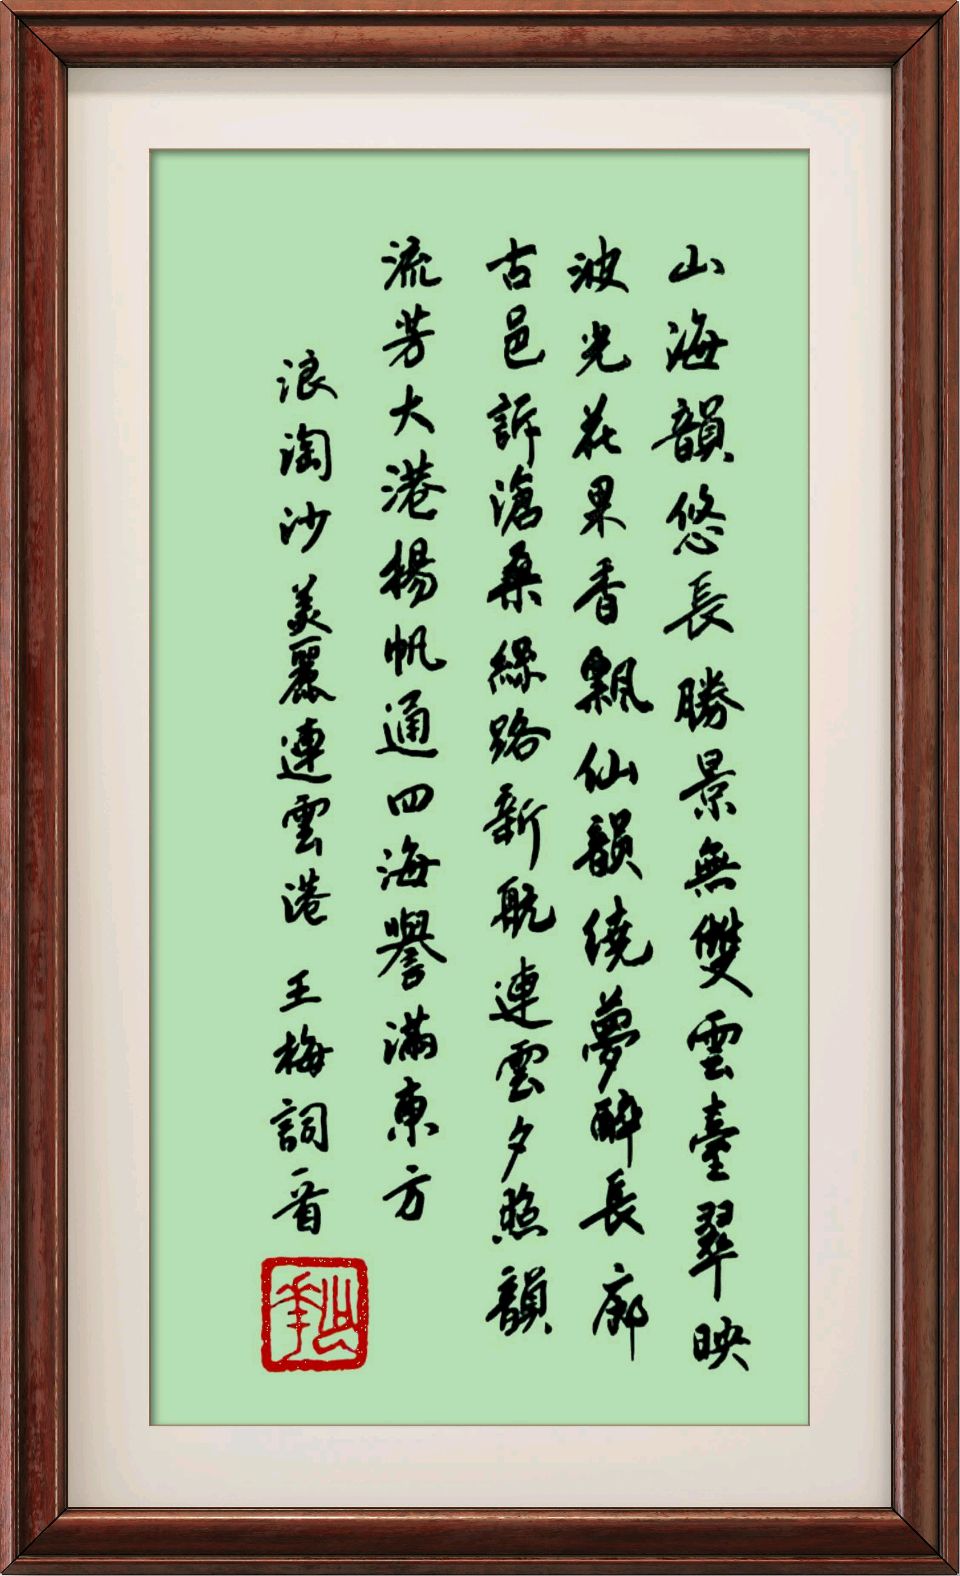 山海韻悠長勝景無雙雲臺翠映
波光花果香飄仙韻繞夢醉長廊
古邑訴滄桑絲路新航連雲夕照韻
流芳大港楊帆通四海譽滿東方
浪淘沙美麗連雲港 王梅詞一首